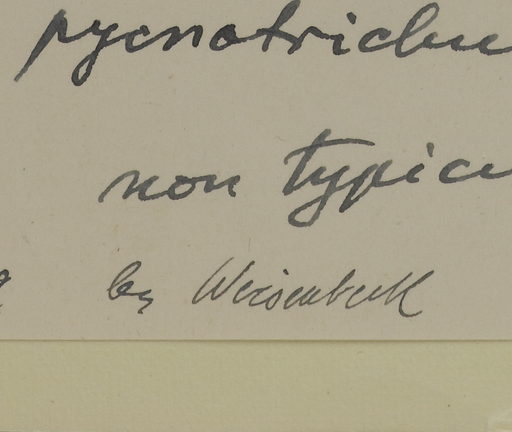 pycnotrichu
non typicu
by Weisenbeck